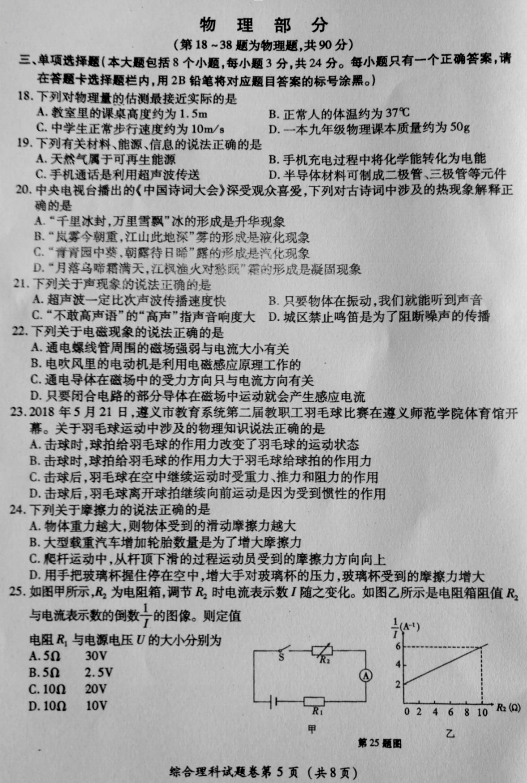 物 理 部 分
(第18~38题为物理题,共90分)
三、单项选择题(本大题包括8个小题,每小题3分,共24分。每小题只有一个正确答案,请
在答题卡选择题栏内,用2B铅笔将对应题目答案的标号涂黑。)
18.下列对物理量的估测最接近实际的是
A.教室里的课桌高度约为1.5m B.正常人的体温约为37℃
C.中学生正常步行速度约为10m/s D.一本九年级物理课本质量约为50g
19.下列有关材料、能源、信息的说法正确的是
A.天然气属于可再生能源 B.手机充电过程中将化学能转化为电能
C.手机通话是利用超声波传送 D.半导体材料可制成二极管、三极管等元件
20.中央电视台播出的《中国诗词大会》深受观众喜爱,下列对古诗词中涉及的热现象解释正
确的是
A.“千里冰封,万里雪飘”冰的形成是升华现象
B.“岚雾今朝重,江山此地深”雾的形成是液化现象
C.“青青园中葵,朝露待日晞”露的形成是汽化现象
D.“月落乌啼霜满天,江枫渔火对愁眠”霜的形成是凝固现象
21.下列关于声现象的说法正确的是
A.超声波一定比次声波传播速度快 B.只要物体在振动,我们就能听到声音
C.“不敢高声语”的“高声”指声音响度大 D.城区禁止鸣笛是为了阻断噪声的传播
22.下列关于电磁现象的说法正确的是
A.通电螺线管周围的磁场强弱与电流大小有关
B.电吹风里的电动机是利用电磁感应原理工作的
C.通电导体在磁场中的受力方向只与电流方向有关
D.只要闭合电路的部分导体在磁场中运动就会产生感应电流
23.2018年5月21日,遵义市教育系统第二届教职工羽毛球比赛在遵义师范学院体育馆开
幕。关于羽毛球运动中涉及的物理知识说法正确的是
A.击球时,球拍给羽毛球的作用力改变了羽毛球的运动状态
B.击球时,球拍给羽毛球的作用力大于羽毛球给球拍的作用力
C.击球后,羽毛球在空中继续运动时受重力、推力和阻力的作用
D.击球后,羽毛球离开球拍继续向前运动是因为受到惯性的作用
24.下列关于摩擦力的说法正确的是
A.物体重力越大,则物体受到的滑动摩擦力越大
B.大型载重汽车增加轮胎数量是为了增大摩擦力
C.爬杆运动中,从杆顶下滑的过程运动员受到的摩擦力方向向上
D.用手把玻璃杯握住停在空中,增大手对玻璃杯的压力,玻璃杯受到的摩擦力增大
25.如图甲所示,R₂为电阻箱,调节R₂时电流表示数I随之变化。如图乙所示是电阻箱阻值R₂
与电流表示数的倒数1/I的图像。则定值
电阻R₁与电源电压U的大小分别为
A.5Ω 30V
B.5Ω 2.5V
C.10Ω 20V
D.10Ω 10V
S R₂ A R₁
甲
1/I(A⁻¹)
6
4
2
0 2 4 6 8 10 R₂(Ω)
乙
第25题图
综合理科试题卷第5页(共8页)